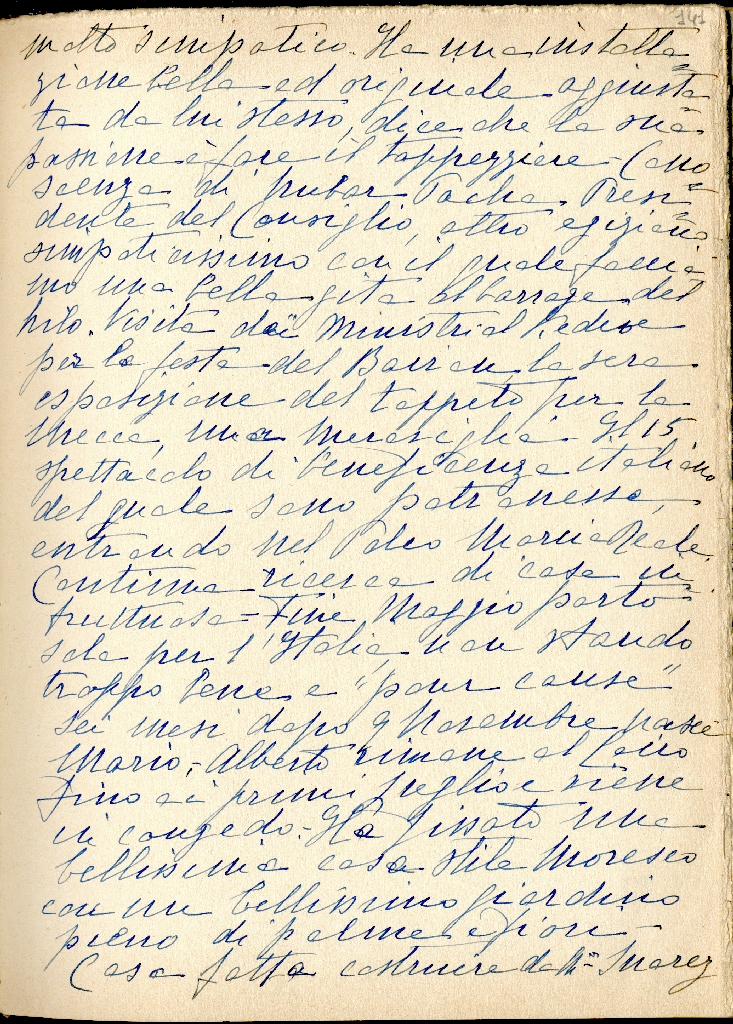 141
molto simpatico. Ha una installa=
zione bella ed originale aggiusta=
ta da lui stesso, dice che la sua
passione è fare il tappezziere - Cono=
scenza di Pacha Presi=
dente del Consiglio, altro egiziano
simpaticissimo con il quale faccia=
mo una bella gita al barrage del
Nilo. Visita dei Ministri al Kedive
per la festa del Bairam, la sera
esposizione del tappeto per la
Mecca, una meraviglia - Il 15
spettacolo di beneficenza italiano
del quale sono patronessa,
entrando nel Palco Marcia Reale.
Continua ricerca di casa in=
fruttuosa = Fine Maggio parto
sola per l'Italia, non stando
troppo bene e "pour cause"
sei mesi dopo 9 Novembre nasce
Mario, - Alberto rimane al Cairo
Fino ai primi Luglio e viene
in congedo. - Ha fissato una
bellissima casa stile Moresco
con un bellissimo giardino
pieno di palme e fiori -
Casa fatta costruire da Mr= Suarez